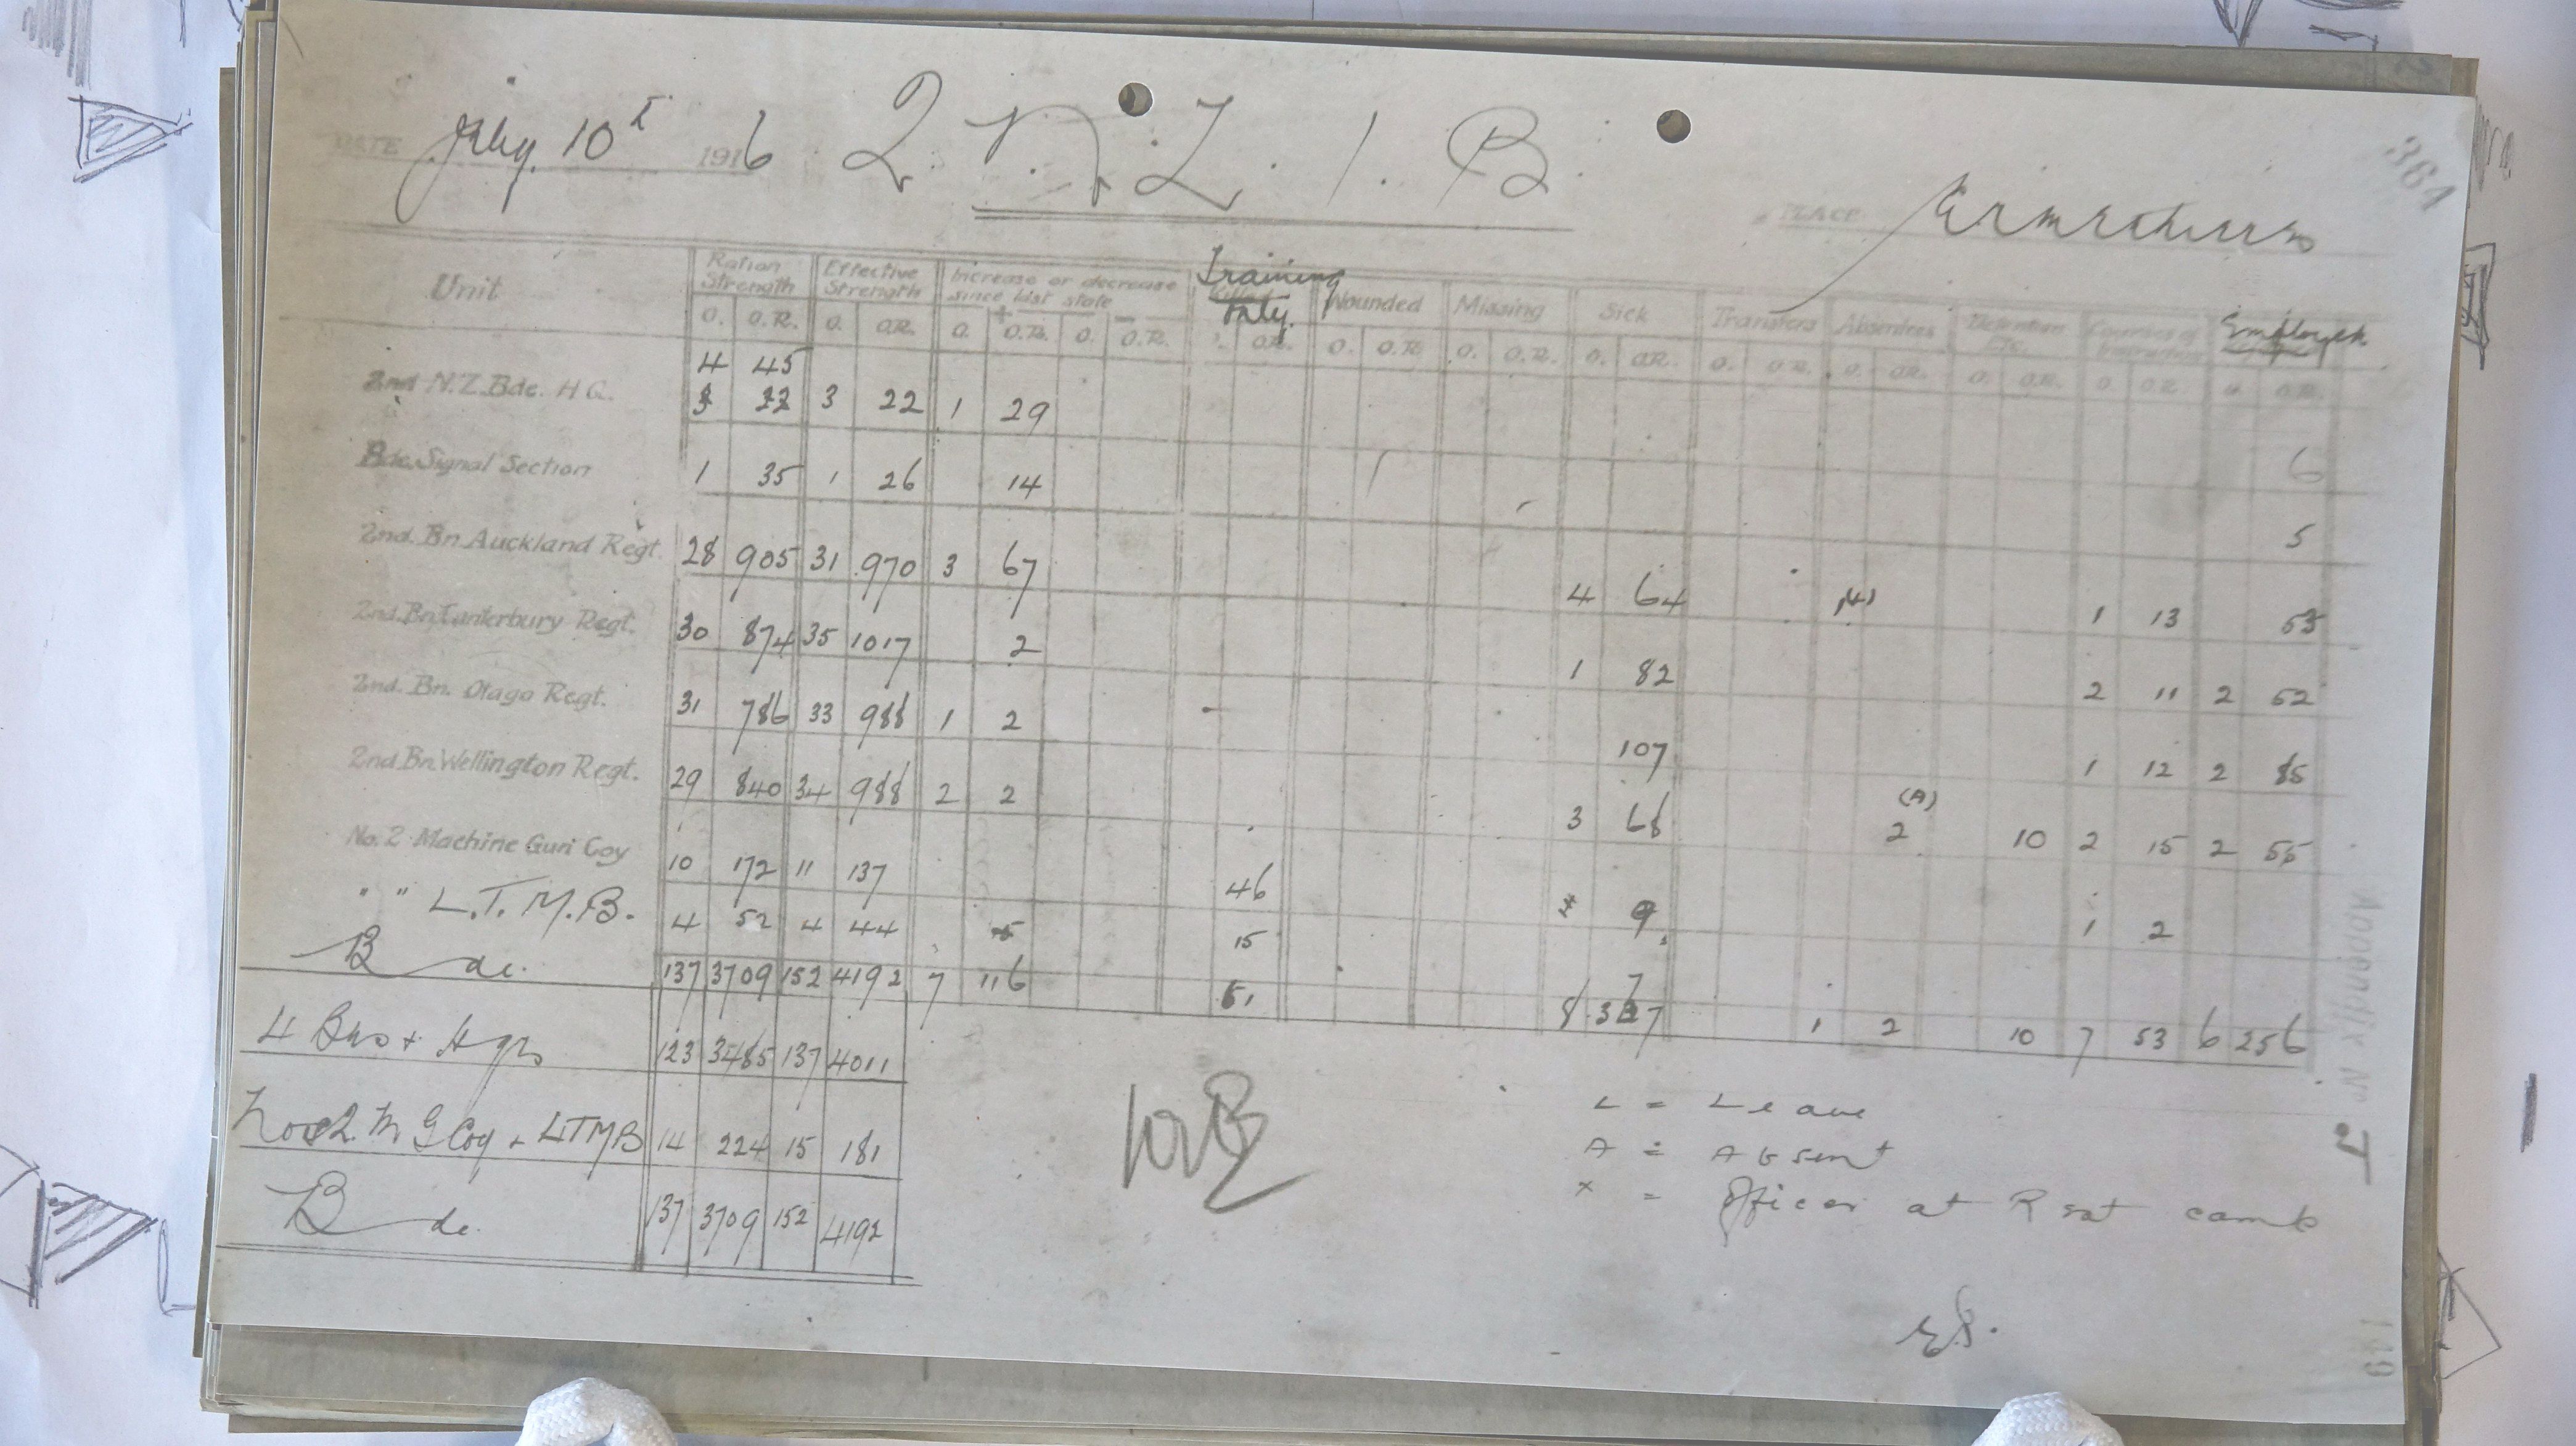 364
DATE July 10t 1916 2. N. Z. 1. B.
PLACE Ermetiners
Unit Ration Strength Effective Strength Increase or decrease since last state Training only. Wounded Missing Sick Transfers Absentees Detention Etc. Courses of Instruction Employed
O. O.R. O. O.R. + O. O.R. - O. O.R. O.R. O. O.R. O. O.R. O. O.R. O. O.R. O. O.R. O. O.R. O. O.R. O. O.R.
4 45
2nd N.Z. Bde. H Q. 3 22 3 22 1 29 6
Bde. Signal Section 1 35 1 26 14 5
2nd. Bn Auckland Regt. 28 905 31 970 3 67 4 64 1 13 53
2nd. Bn. Canterbury Regt. 30 874 35 1017 2 1 82 2 11 2 52
2nd. Bn. Otago Regt. 31 786 33 988 1 2 107 1 12 2 85
2nd. Bn. Wellington Regt. 29 840 34 988 2 2 3 68 (A) 2 10 2 15 2 55
No. 2 Machine Gun Coy 10 172 11 137 46 9 1 2
" " L.T.M.B. 4 52 4 44 15 7
Bde. 137 3709 152 4192 7 116 61 8 337 1 2 10 7 53 6 256
4 Bns + Hqrs 123 3485 137 4011
No 2. M G Coy + LTMB 14 224 15 181
Bde. 137 3709 152 4192
L = Leave
A = Absent
x = Officer at Rest camp
Appendix No J.
149